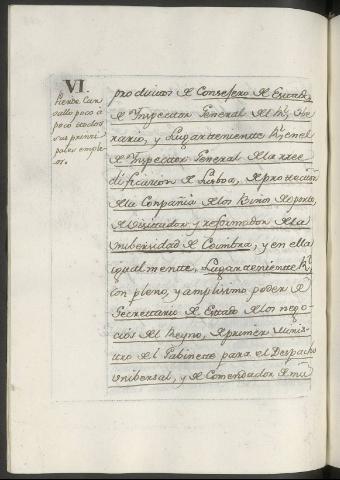 VI.
Pierde Car-
vallo poco à
poco todos
sus princi-
pales emple-
os.
productos de Consejero de Estado,
de Inspector General del Rl. He-
rario, y Lugarteniente Rl. en el
de Inspector General de la ree-
dificacion de Lisboa, de proteccion
de la Conpañia de los Vinos de oporto,
de Visitador y reformador de la
Vniberſidad de Coimbra, y en ella
igualmente, Lugarteniente Rl.
con pleno, y amplisimo poder de
Secretario de Estado de los nego-
cios del Reyno, de primer Minis-
tro del Gabinete para el Despacho
Vnibersal, y de Comendador de mu